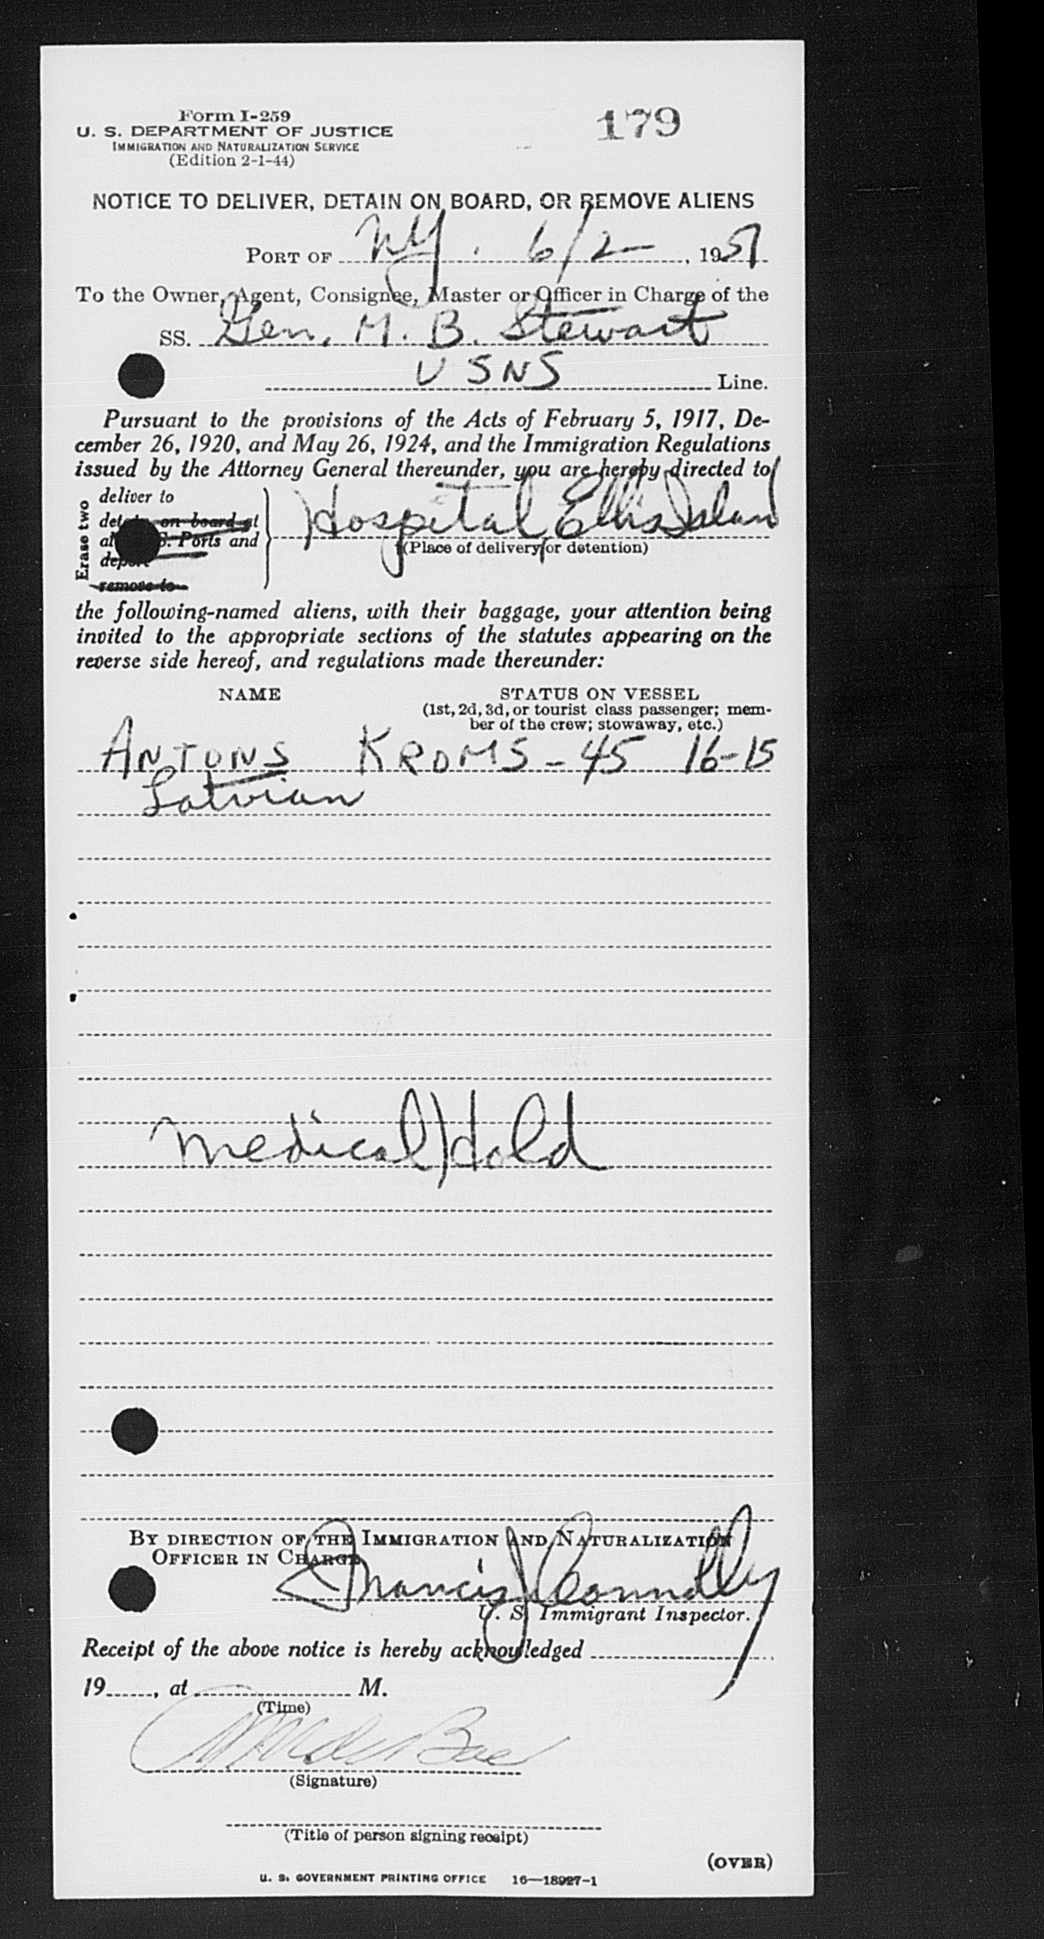 Form I-259
179
U. S. DEPARTMENT OF JUSTICE
IMMIGRATION AND NATURALIZATION SERVICE
(Edition 2-1-44)
NOTICE TO DELIVER, DETAIN ON BOARD, OR REMOVE ALIENS
PORT OF NY. 6/2, 1951
To the Owner, Agent, Consignee, Master or Officer in Charge of the
SS. Gen. M. B. Stewart
USNS Line.
Pursuant to the provisions of the Acts of February 5, 1917, De-
cember 26, 1920, and May 26, 1924, and the Immigration Regulations
issued by the Attorney General thereunder, you are hereby directed to
Erase two
deliver to
on board at
Ports and
remove to
Hospital Ellis Island
(Place of delivery or detention)
the following-named aliens, with their baggage, your attention being
invited to the appropriate sections of the statutes appearing on the
reverse side hereof, and regulations made thereunder:
NAME STATUS ON VESSEL
(1st, 2d, 3d, or tourist class passenger; mem-
ber of the crew; stowaway, etc.)
ANTONS KROMS - 45 16-15
Latvian
Medical Hold
BY DIRECTION OF THE IMMIGRATION AND NATURALIZATION
OFFICER IN CHARGE
Francis J Connolly
U. S. Immigrant Inspector.
Receipt of the above notice is hereby acknowledged
19, at M.
(Time)
(Signature)
(Title of person signing receipt)
(OVER)
U. S. GOVERNMENT PRINTING OFFICE 16—18927-1